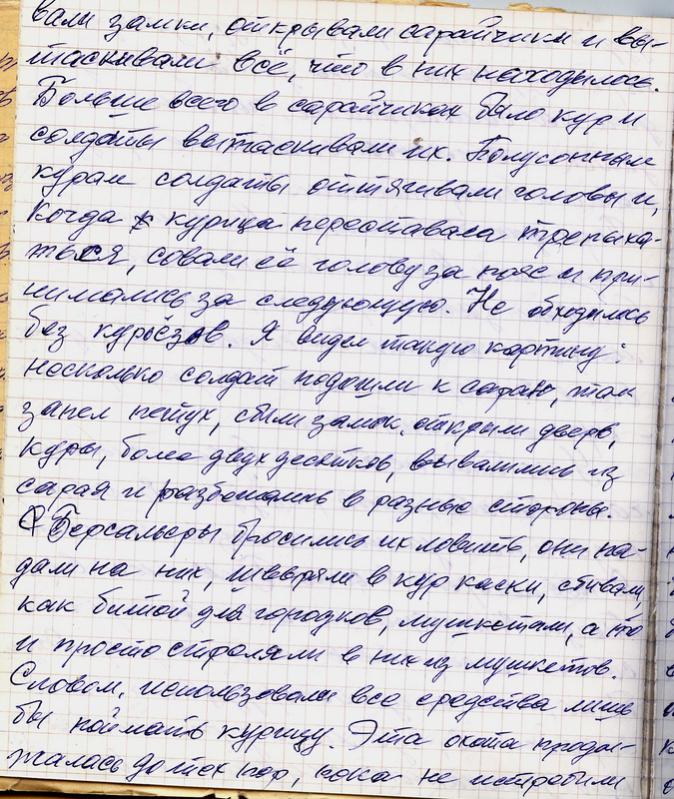 вали замки, открывали сарайчики и вы-
таскивали всё, что в них находилось.
Больше всего в сарайчиках было кур и
солдаты вытаскивали их. Полусонным
курам солдаты оттягивали головы и,
когда курица переставала трепыха-
ться, совали её голову за пояс и при-
нимались за следующую. Не обходилось
без курьёзов. Я видел такую картину:
несколько солдат подошли к сараю, там
запел петух, сбили замок, открыли дверь,
куры, более двух десятков, вывалились из
сарая и разбежались в разные стороны.
Берсальеры бросились их ловить, они па-
дали на них, швыряли в кур каски, сбивали,
как битой для городков, мушкетами, а то
и просто стреляли в них из мушкетов.
Словом, использовали все средства лишь
бы поймать курицу. Эта охота продол-
жалась до тех пор, пока не истребили